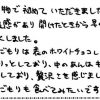 物で初めていただきました
感があり開けたときから
しました。
ごもりは表のホワイトチョコレ
っとしており、中のあんは
としており、贅沢さを感じまし
ごもりも食べてみたいです